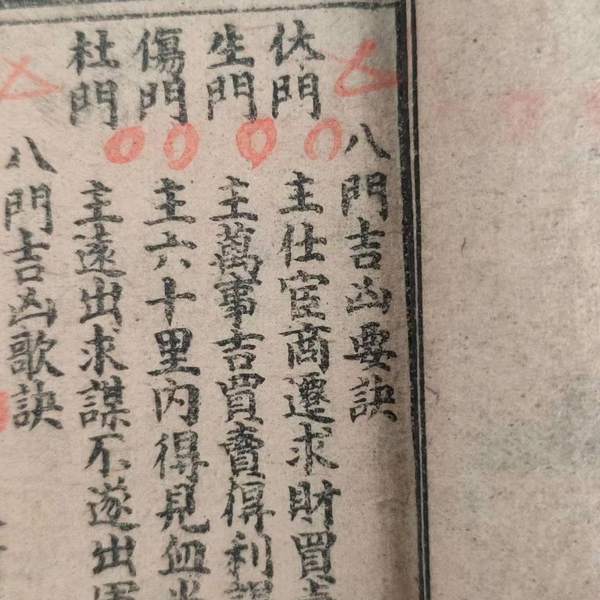 八門吉凶要訣
休門 主仕宦商遷求財買
生門 主萬事吉買賣得利
傷門 主六十里內得見血
杜門 主遠出求謀不遂出
八門吉凶歌訣